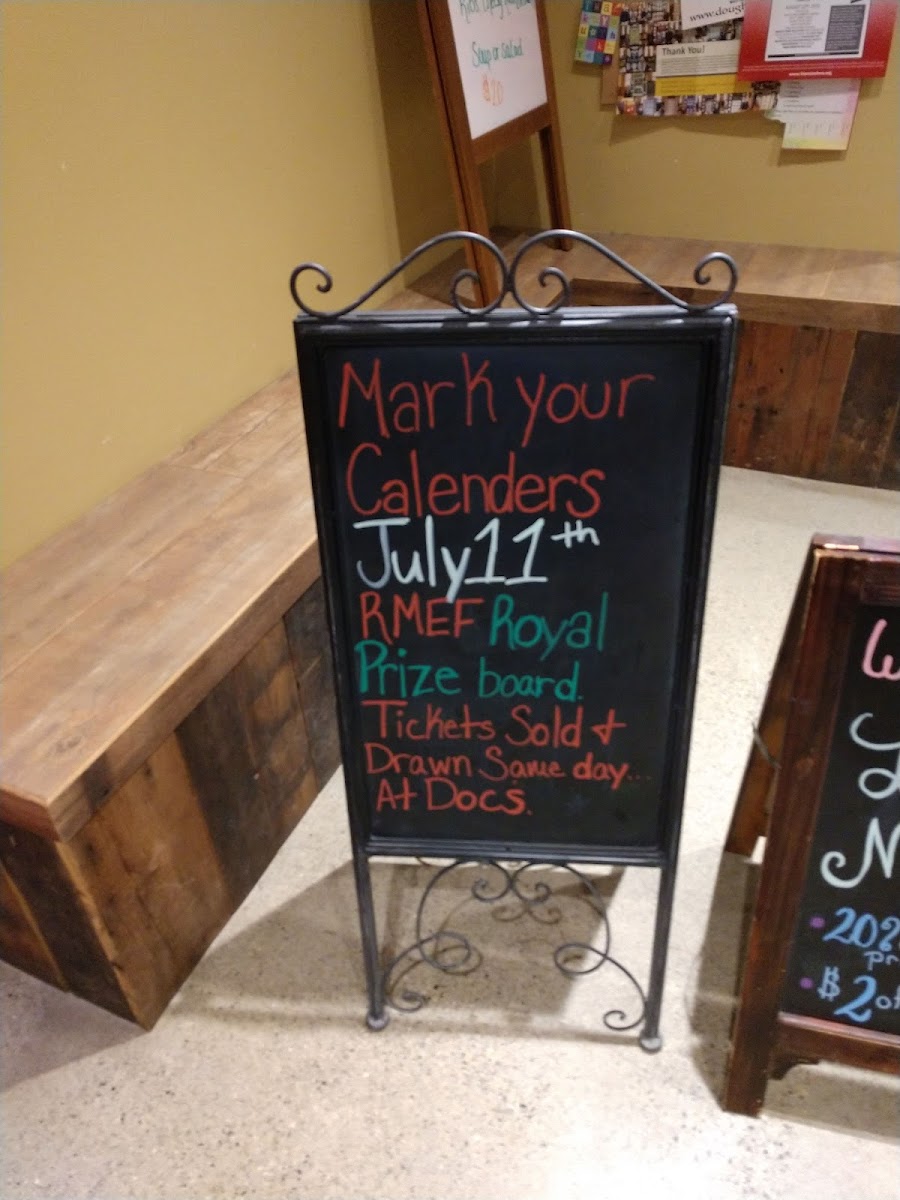 Soup or Salad
$10
www.dough
Thank You!
Mark your
Calenders
July 11th
RMEF Royal
Prize board.
Tickets Sold &
Drawn Same day...
At Docs.
N
20%
pr
$2 of